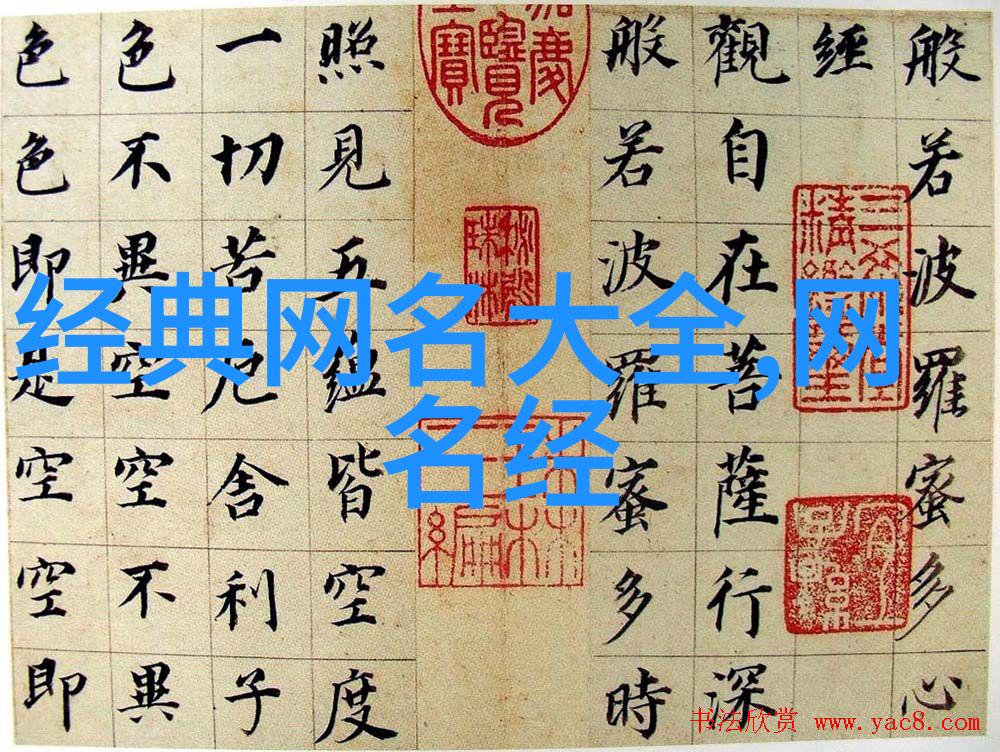 般若波羅蜜多心
經
觀自在菩薩行深
般若波羅蜜多時
照見五蘊皆空度
一切苦厄舍利子
色不異空空不異
色色即是空空即
经典网名大全,网
名经
书法欣赏 www.yac8.com